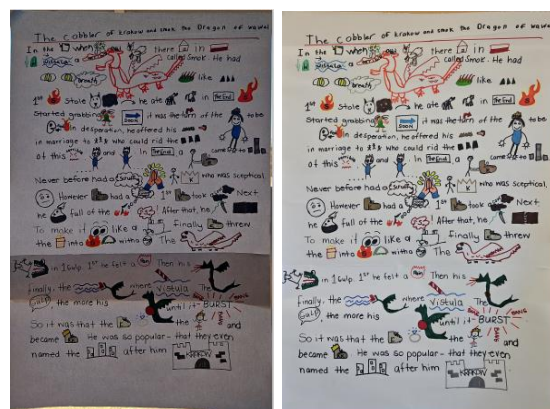 The cobbler of Krakow and Smok the Dragon of Wawel
In the when there in
a called Smok. He had
Breath like
1st Stole he ate in The End
Started grabbing Soon it was the turn of the to be
in desperation, he offered his
in marriage to who could rid the
of this and In The End a came
Never before had a who was sceptical.
However had a 1st took Next
he full of the After that, he
To make it like a Finally threw
the into with a The
in 1 gulp. 1st he felt a Then his
finally, the where Vistula The
Gulp the more his until it- BURST
So it was that the the and
became He was so popular- that they even
named the after him KRAKOW
The cobbler of Krakow and Smok the Dragon of Wawel
In the when there in
a called Smok. He had
Breath like
1st Stole he ate in The End
Started grabbing Soon it was the turn of the to be
in desperation, he offered his
in marriage to who could rid the
of this and In The End a came
Never before had a who was sceptical.
However had a 1st took Next
he full of the After that, he
To make it like a Finally threw
the into with a The
in 1 gulp. 1st he felt a Then his
finally, the where Vistula The
Gulp the more his until it- BURST
So it was that the the and
became He was so popular- that they even
named the after him KRAKOW